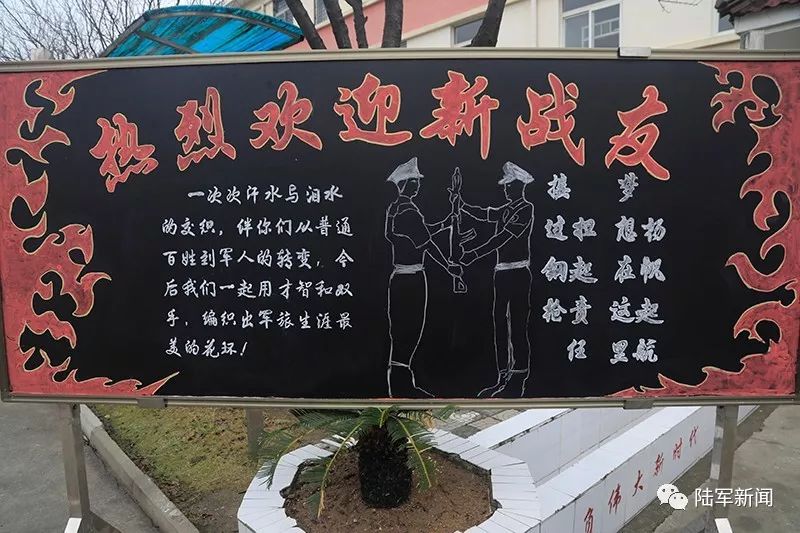 热烈欢迎新战友
一次次汗水与泪水
的交织，伴你们从普通
百姓到军人的转变，今
后我们一起用才智和双
手，编织出军旅生涯最
美的花环！
接过钢枪
担起责任
梦想在这里
扬帆起航
负伟大新时代
陆军新闻